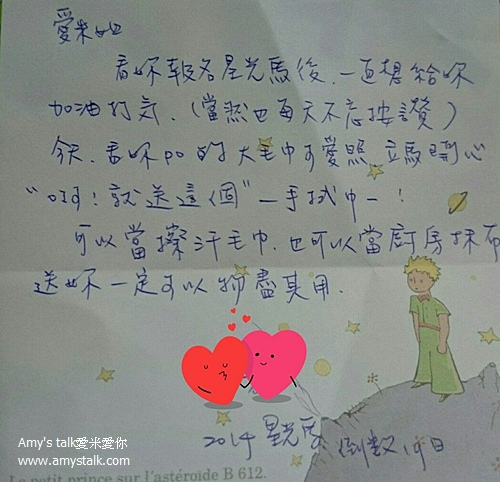 愛米姐
看妳報名星光馬後，一直想給妳
加油打氣，（當然也每天不忘按讚）
今天，看妳po的大毛巾可愛照，立馬開心
“啊！就送這個”—手拭巾—！
可以當擦汗毛巾，也可以當廚房抹布
送妳一定可以物盡其用．
2014 星光馬 倒數19日
Amy's talk愛米愛你
www.amystalk.com
Le petit prince sur l'astéroïde B 612.